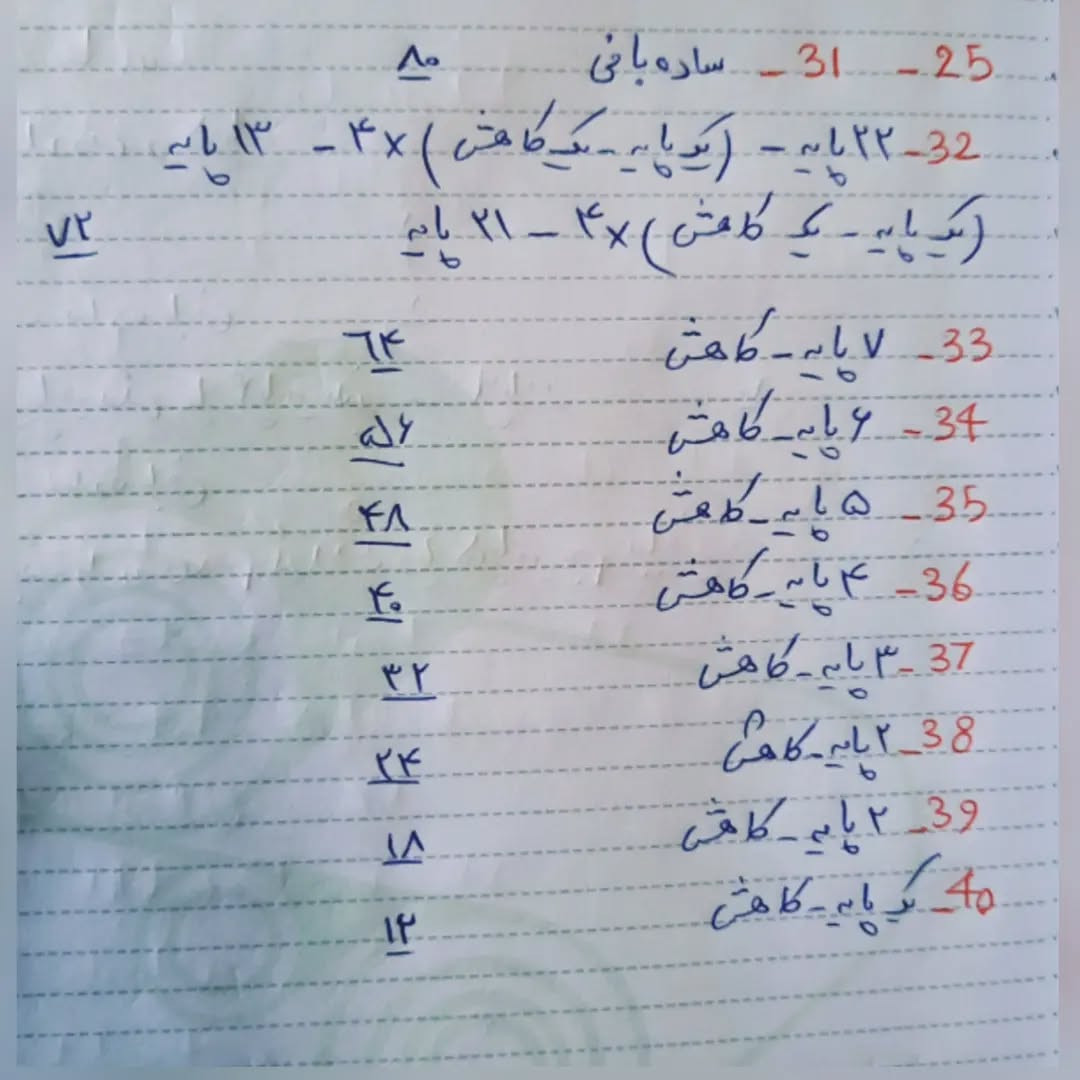 25 - 31 - ساده بافی ۸۰
32 - ۲۲ پایه - (یک پایه - یک کاهش) ×۴ - ۱۳ پایه
(یک پایه - یک کاهش) ×۴ - ۲۱ پایه ۷۲
33 - ۷ پایه - کاهش ۶۴
34 - ۶ پایه - کاهش ۵۶
35 - ۵ پایه - کاهش ۴۸
36 - ۴ پایه - کاهش ۴۰
37 - ۳ پایه - کاهش ۳۲
38 - ۲ پایه - کاهش ۲۴
39 - ۲ پایه - کاهش ۱۸
40 - یک پایه - کاهش ۱۲